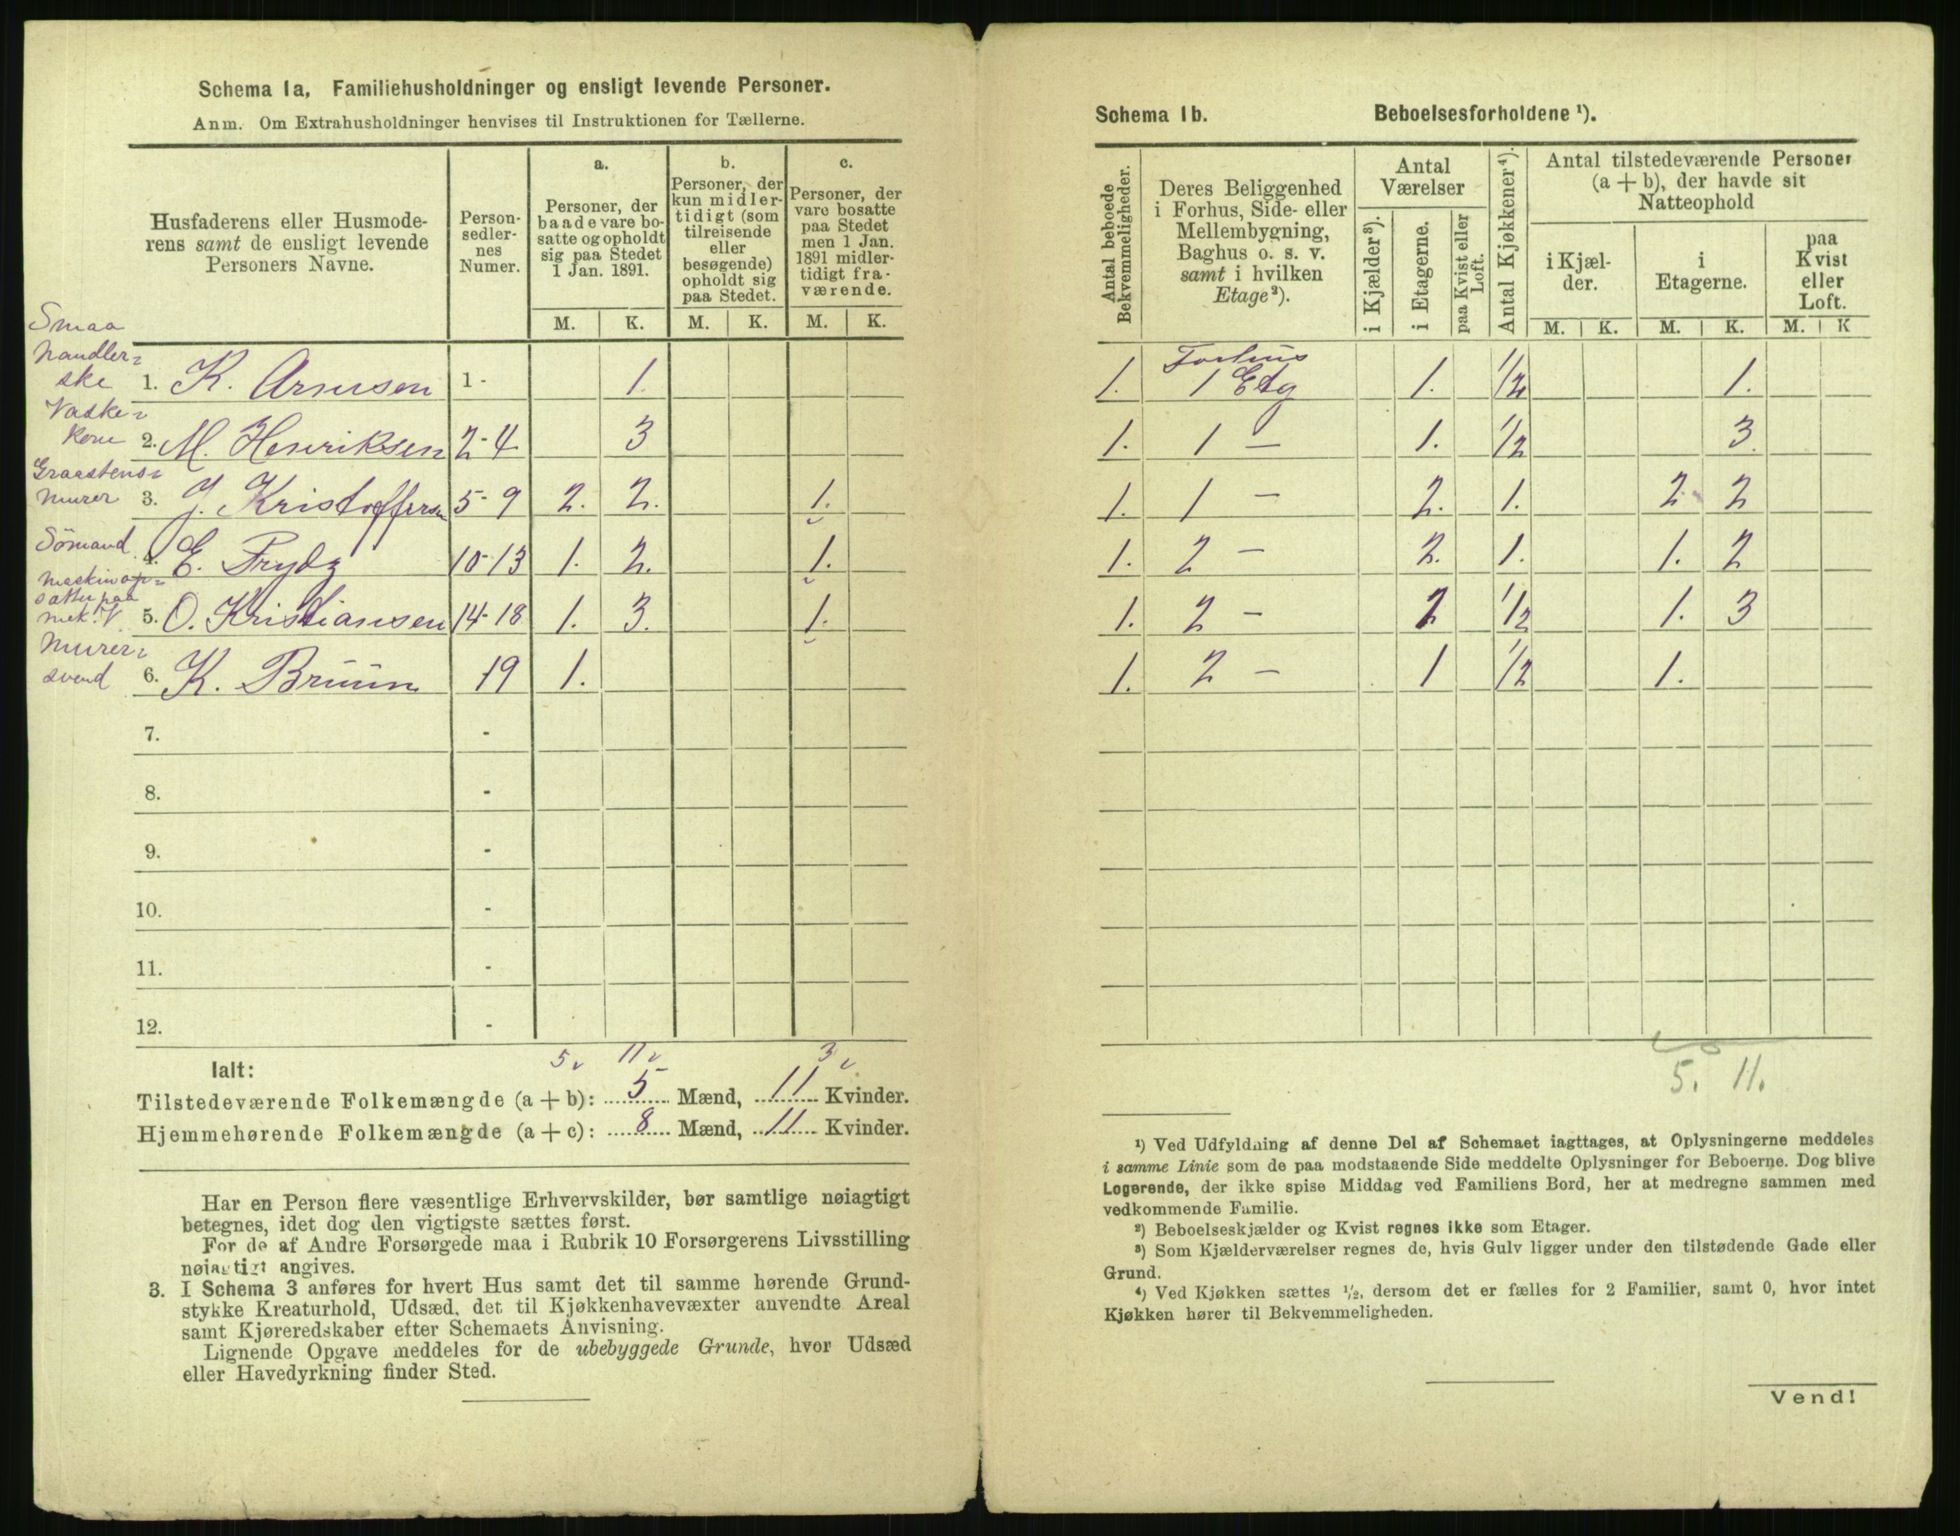 Schema 1a, Familiehusholdninger og ensligt levende Personer.
Anm. Om Extrahusholdninger henvises til Instruktionen for Tællerne.
Husfaderens eller Husmode-
rens samt de ensligt levende
Personers Navne.
Person-
sedler-
nes
Numer.
a.
Personer, der
baade vare bo-
satte og opholdt
sig paa Stedet
1 Jan. 1891.
b.
Personer, der
kun midler-
tidigt (som
tilreisende
eller
besøgende)
opholdt sig
paa Stedet.
c.
Personer, der
vare bosatte
paa Stedet
men 1 Jan.
1891 midler-
tidigt fra-
værende.
M. K. M. K. M. K.
Smaa
handler=
ske 1. K. Arnesen 1 - 1.
Vaske=
kone 2. M. Henriksen 2-4 3
Graastens=
murer 3. J. Kristoffersen 5-9 2. 2. 1.
Sömand 4. E. Frydz 10-13 1. 2. 1.
Maskinop=
sætter paa
mek. V. 5. O. Kristiansen 14-18 1. 3. 1.
Murer=
svend 6. K. Bruun 19 1.
7. -
8. -
9. -
10. -
11. -
12. -
5 11 3
Ialt:
Tilstedeværende Folkemængde (a + b): 5 Mænd, 11 Kvinder.
Hjemmehørende Folkemængde (a + c): 8 Mænd, 11 Kvinder.
Har en Person flere væsentlige Erhvervskilder, bør samtlige nøiagtigt
betegnes, idet dog den vigtigste sættes først.
For de af Andre Forsørgede maa i Rubrik 10 Forsørgerens Livsstilling
nøiagtigt angives.
3. I Schema 3 anføres for hvert Hus samt det til samme hørende Grund-
stykke Kreaturhold, Udsæd, det til Kjøkkenhavevæxter anvendte Areal
samt Kjøreredskaber efter Schemaets Anvisning.
Lignende Opgave meddeles for de ubebyggede Grunde, hvor Udsæd
eller Havedyrkning finder Sted.
Schema 1b. Beboelsesforholdene ¹).
Antal beboede
Bekvemmeligheder.
Deres Beliggenhed
i Forhus, Side- eller
Mellembygning,
Baghus o. s. v.
samt i hvilken
Etage²).
Antal
Værelser
i Kjælder³).
i Etagerne.
paa Kvist eller
Loft.
Antal Kjøkkener⁴).
Antal tilstedeværende Personer
(a + b), der havde sit
Natteophold
i Kjæl-
der.
i
Etagerne.
paa
Kvist
eller
Loft.
M. K. M. K. M. K
1. Forhus
1 Etg 1. 1/2 1.
1. 1 — 1. 1/2 3.
1. 1 — 2. 1. 2 2
1. 2 — 2. 1. 1. 2
1. 2 — 2 1/2 1. 3
1. 2 — 1 1/2 1.
5. 11.
¹) Ved Udfyldning af denne Del af Schemaet iagttages, at Oplysningerne meddeles
i samme Linie som de paa modstaaende Side meddelte Oplysninger for Beboerne. Dog blive
Logerende, der ikke spise Middag ved Familiens Bord, her at medregne sammen med
vedkommende Familie.
²) Beboelseskjælder og Kvist regnes ikke som Etager.
³) Som Kjælderværelser regnes de, hvis Gulv ligger under den tilstødende Gade eller
Grund.
⁴) Ved Kjøkken sættes ½, dersom det er fælles for 2 Familier, samt 0, hvor intet
Kjøkken hører til Bekvemmeligheden.
Vend!